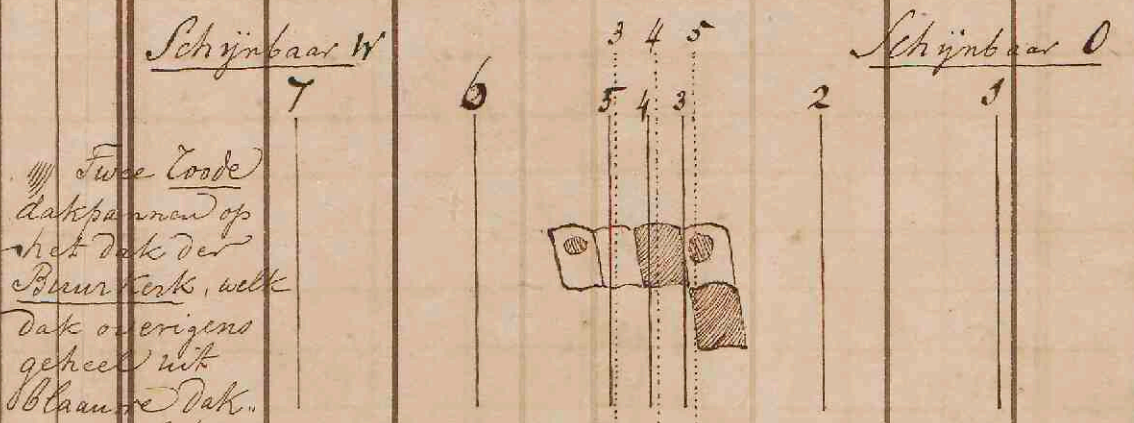 Schijnbaar W
3 4 5
Schijnbaar O
7 6 5 4 3 2 1
Twee roode
dakpannen op
het dak der
Buurkerk, welk
dak overigens
geheel uit
blaauwe dak„